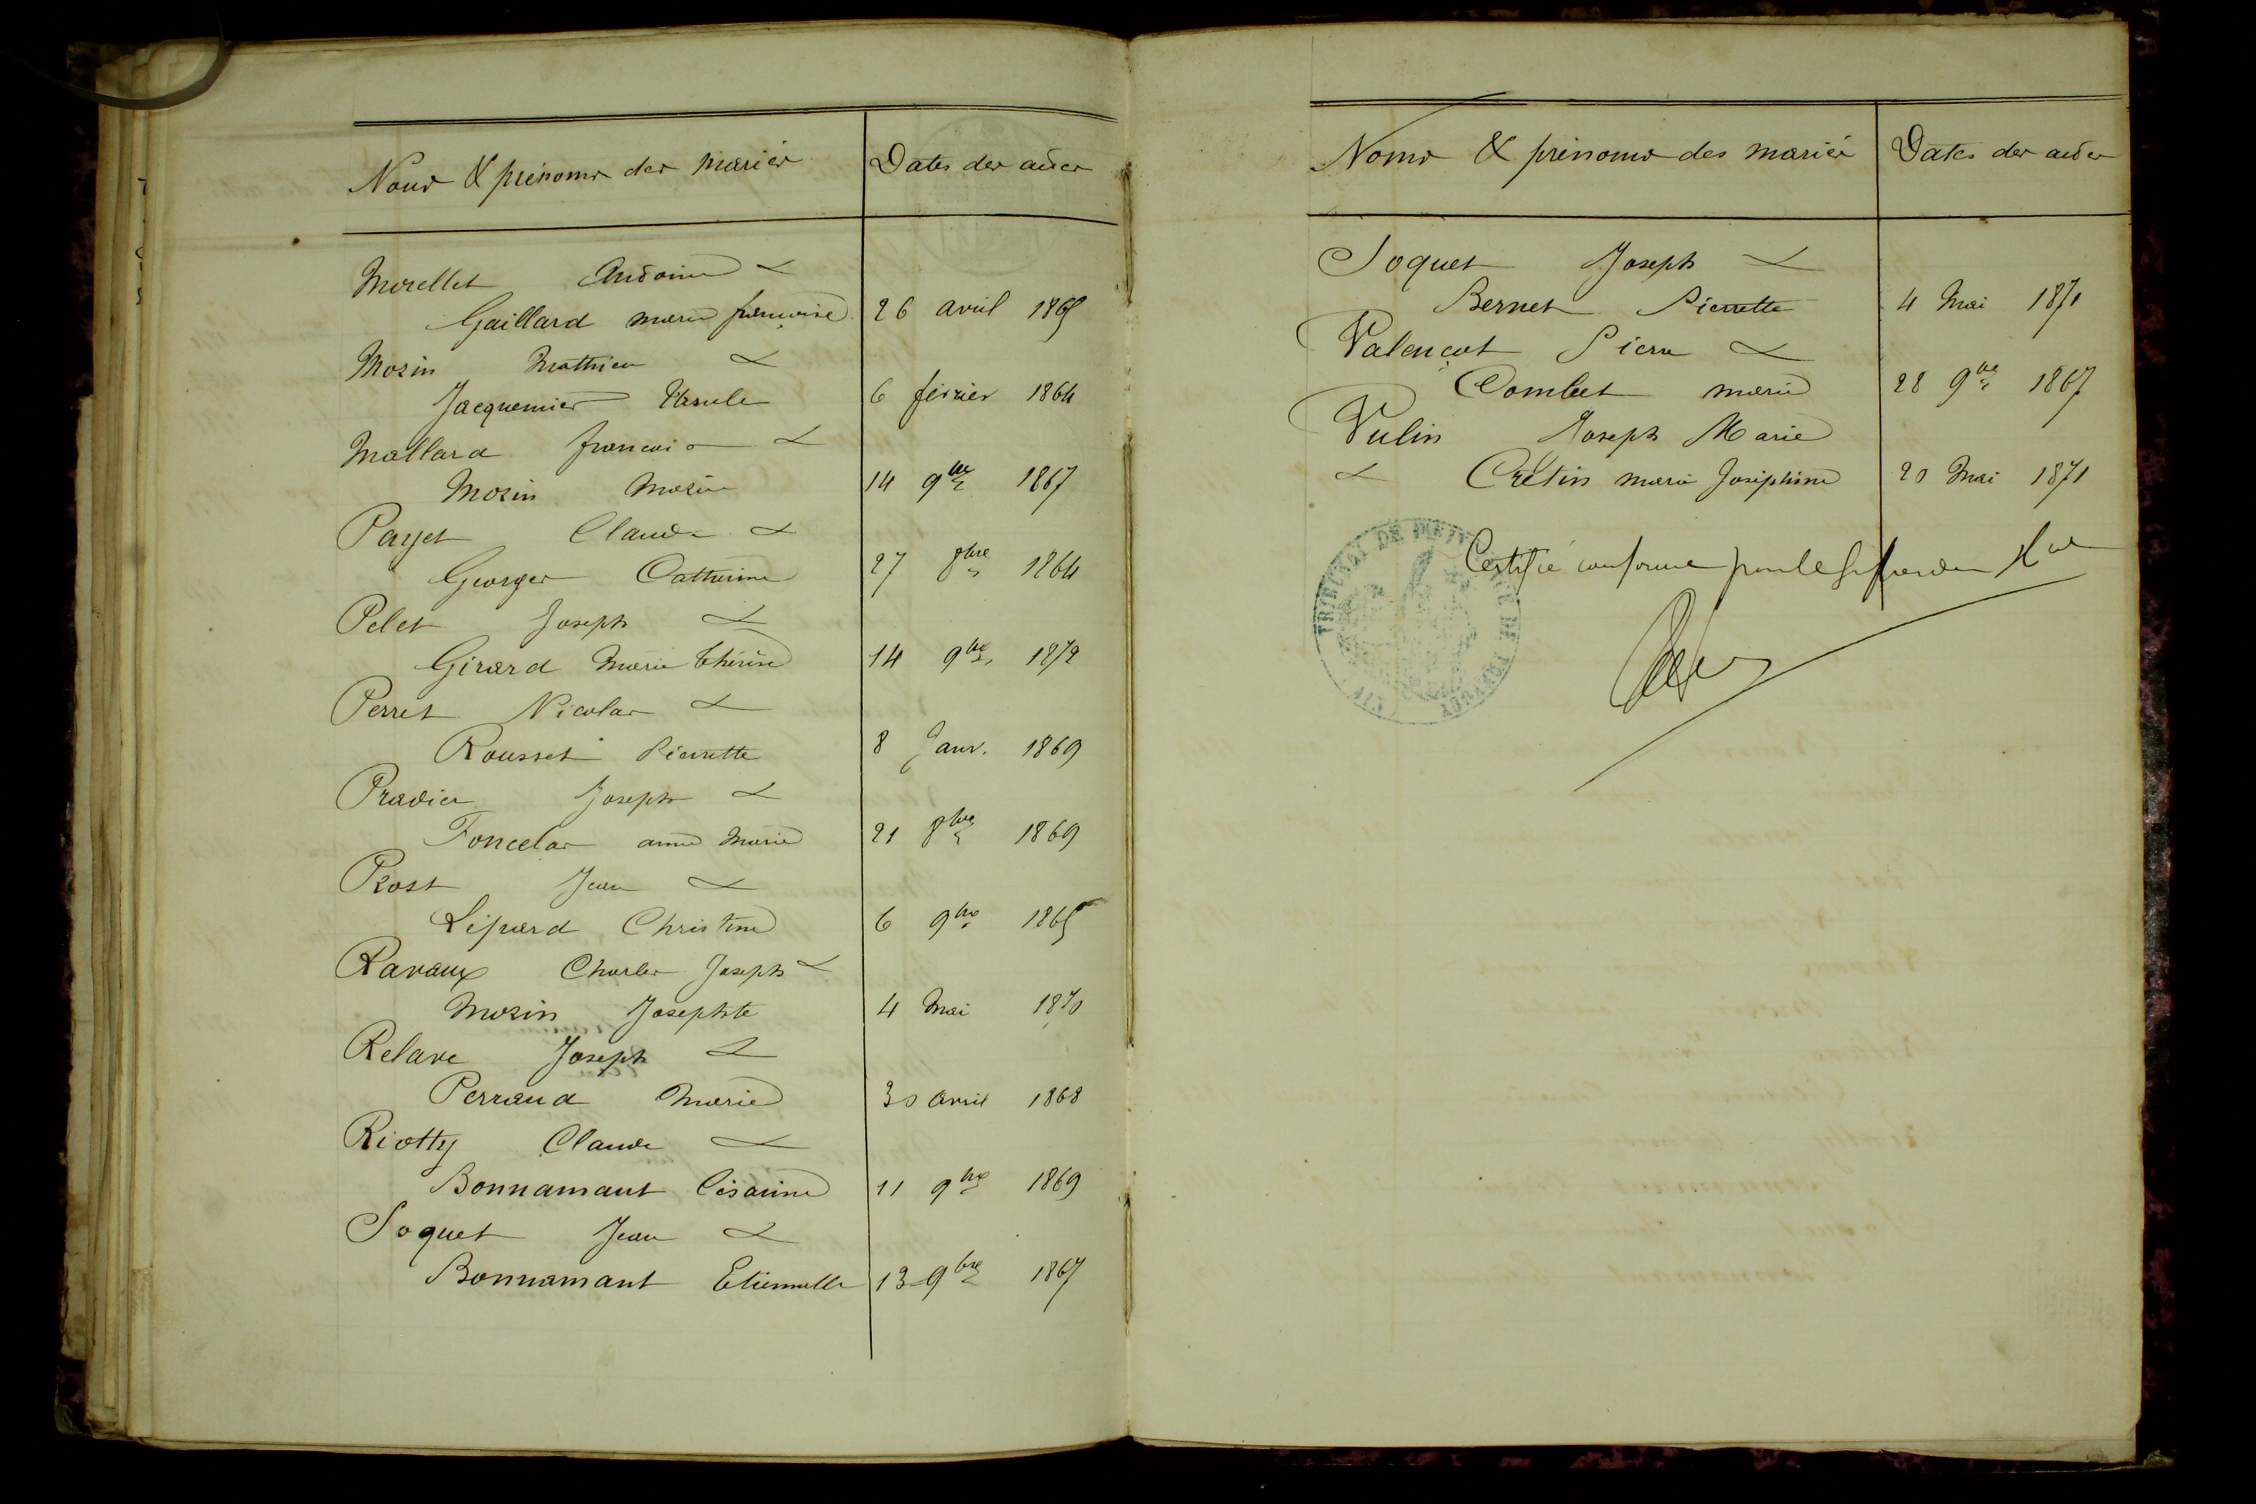 Noms & prénoms des mariés Dates des actes
Morellet Antoine &
Gaillard marie françoise 26 avril 1865
Mosin Mathieu &
Jacquemier Ursule 6 février 1864
Mallard françois &
Mosin Marie 14 9bre 1867
Payet Claude &
Georges Catherine 27 8bre 1864
Pelet Joseph &
Girard Marie thérèse 14 9bre 1872
Perret Nicolas &
Rousset Pierrette 8 Janv. 1869
Pradier Joseph &
Foncelas anne Marie 21 8bre 1869
Prost Jean &
Lépard Christine 6 9bre 1865
Ravaux Charles Joseph &
Mosin Josephte 4 Mai 1870
Relave Joseph &
Perraud Marie 30 avril 1868
Riotty Claude &
Bonnamant Césarine 11 9bre 1869
Soquet Jean &
Bonnamant Etiennette 13 9bre 1867
Noms & prénoms des mariés Dates des actes
Soquet Joseph &
Bernet Pierrette 4 Mai 1871
Valençot Pierre &
Combet marie 28 9bre 1867
Vulin Joseph Marie
& Crétin marie Joséphine 20 Mai 1871
Certifié conforme
TRIBUNAL DE PREMIERE INSTANCE DE TREVOUX